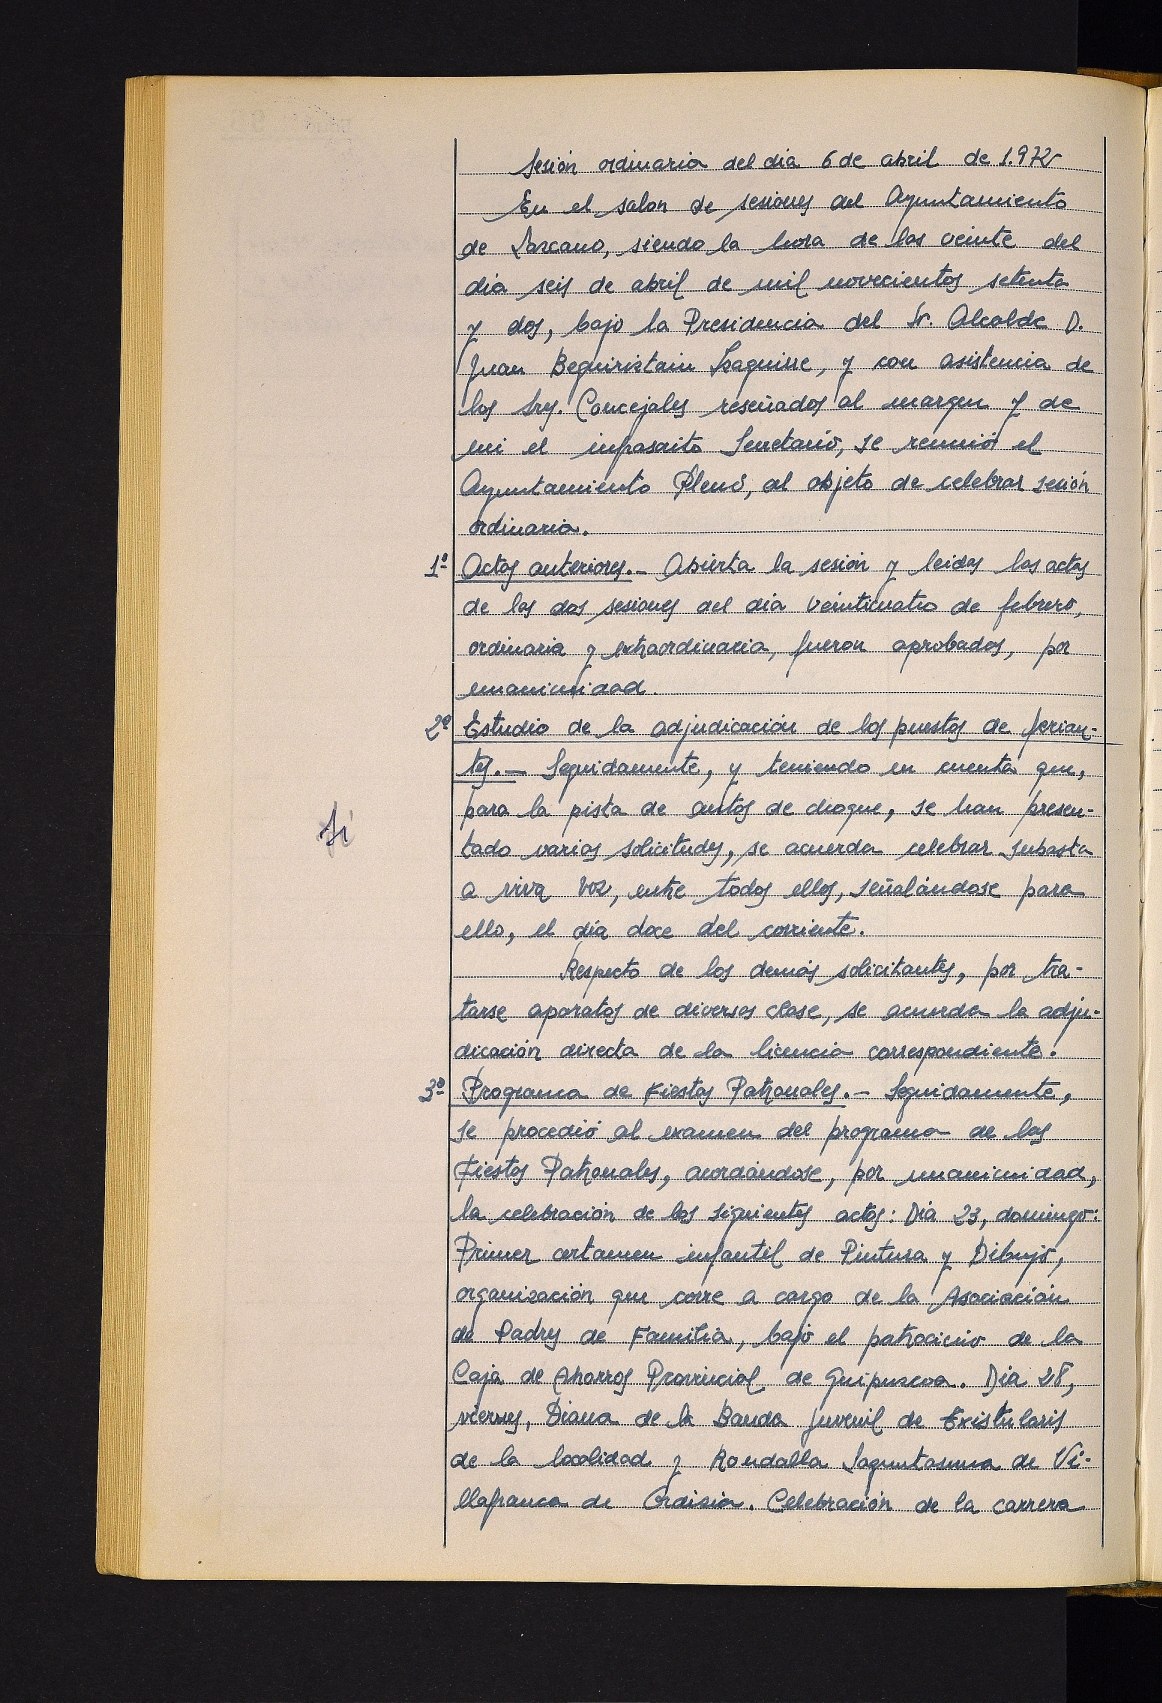 Sesión ordinaria del dia 6 de abril de 1.972
En el salon de sesiones del Ayuntamiento
de Lazcano, siendo la hora de las veinte del
dia seis de abril de mil novecientos setenta
y dos, bajo la Presidencia del Sr. Alcalde D.
Juan Beguiristain Izaguirre, y con asistencia de
los Sres. Concejales reseñados al margen y de
mi el infrascrito Secretario, se reunió el
Ayuntamiento Pleno, al objeto de celebrar sesión
ordinaria.
1º Actas anteriores.- Abierta la sesión y leidas las actas
de las dos sesiones del dia veinticuatro de febrero,
ordinaria y extraordinaria, fueron aprobadas, por
unanimidad.
2º Estudio de la adjudicación de los puestos de ferian-
tes.- Seguidamente, y teniendo en cuenta que,
para la pista de autos de choque, se han presen-
Si
tado varias solicitudes, se acuerda celebrar subasta
a viva voz, entre todos ellos, señalándose para
ello, el día doce del corriente.
Respecto de los demás solicitantes, por tra-
tarse aparatos de diversas clase, se acuerda la adju-
dicación directa de la licencia correspondiente.
3º Programa de Fiestas Patronales.- Seguidamente,
se procedió al examen del programa de las
Fiestas Patronales, acordándose, por unanimidad,
la celebración de los siguientes actos: Dia 23, domingo:
Primer certamen infantil de Pintura y Dibujo,
organización que corre a cargo de la Asociación
de Padres de Familia, bajo el patrocinio de la
Caja de Ahorros Provincial de Guipuzcoa. Dia 28,
viernes, Diana de la Banda juvenil de Txistularis
de la localidad y Rondalla Jaguntasuna de Vi-
llafranca de Ordizia. Celebración de la carrera